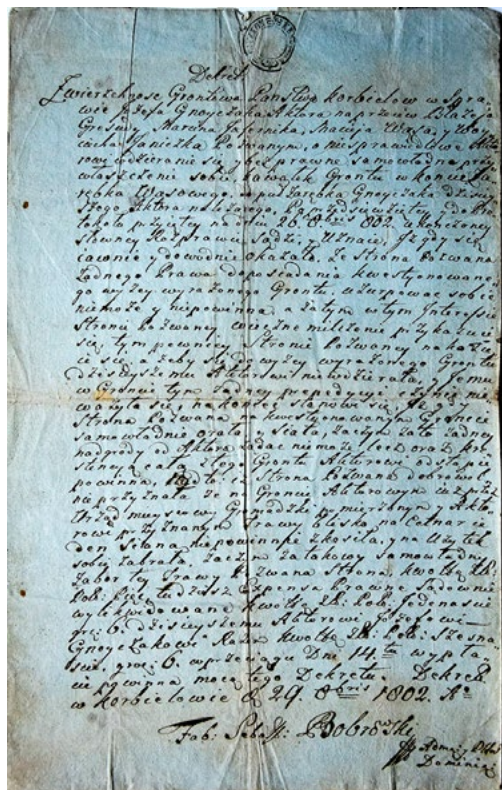 Dekret
Zwierzchnosc Grontowa Panstwa Korbielow w Spra-
wie Jozefa Gnoyczaka Aktora naprzeciw Błażeja
Marcina Maciya y Woy-
ciecha Janiczka Pozwanym, o niesprawiedliwe Akto-
rowi wdzieranie się, y bezprawne samowładne przy-
właszczenie sobie kawałek Grontu w Koncu Za-
rębka Wąsowego, a puł Zarębka Gnoyczaka dzisiey-
szego Aktora należącego,
tokołu przyiętey na dniu 26. 8bris 1802. ukonczoney
słowney Rozprawie sądzi, y Uznaie, Iz gdy się
iawnie y dowodnie okazało, że Strona Pozwana
żadnego Prawa do posiadania kwestyonowane-
go wyzey wyrażonego Grontu, uzurpowac sobie
niemoże y niepowinna, a zatym w tym Interesie
Stronie Pozwaney wieczne milczenie przykazuie
się, tym pewniey Stronie Pozwaney nakazu-
ie się, ażeby się do wyzey wyrażonego Grontu
dzisieyszemu Aktorowi niewdzierała, Jemu
w Groncie tym żadney prepedycyi czynic nie
ważyła się, nakoniec stanowi się, Iż gdy
Strona Pozwana na kwestyonowanym Groncie
samowładnie orała y siała, zaczym zato żadney
nadgrody od Aktora żądac niemoże, lecz oraz
z cała z tego Grontu Aktorowi odstąpic
powinna, Gdy Iż Strona Pozwana dobrowol-
nie przyznała że na Groncie Aktorowym
Urząd mieyscowy Gromadzki pomierzonym y Akto-
rowi przyznanym Trawy blisko na Cetnar ie-
den Siana niepowinnie zkosiła, y na Uzytek
sobie zabrała. Zaczym zatakowy samowładny
Zabor tey Trawy Pozwana Strona, kwotę Zł:
Pol: Pięc tudziesz Expensa Prawne Sądownie
wylikwidowane kwotę Zł: Pol: Jedenascie
gro: 6. dzisieyszemu Aktorowi Jozefowi
Gnoyczakowi Razem kwotę Zł: Pol: Szesna-
scie gro: 6. wprzeciągu Dni 14tu wypła-
cic powinna mocą tego Dekretu. Dekret
w Korbielowie d 29. 8bris 1802. Ao
Fab: Sebast: Bobrowski
Dominij